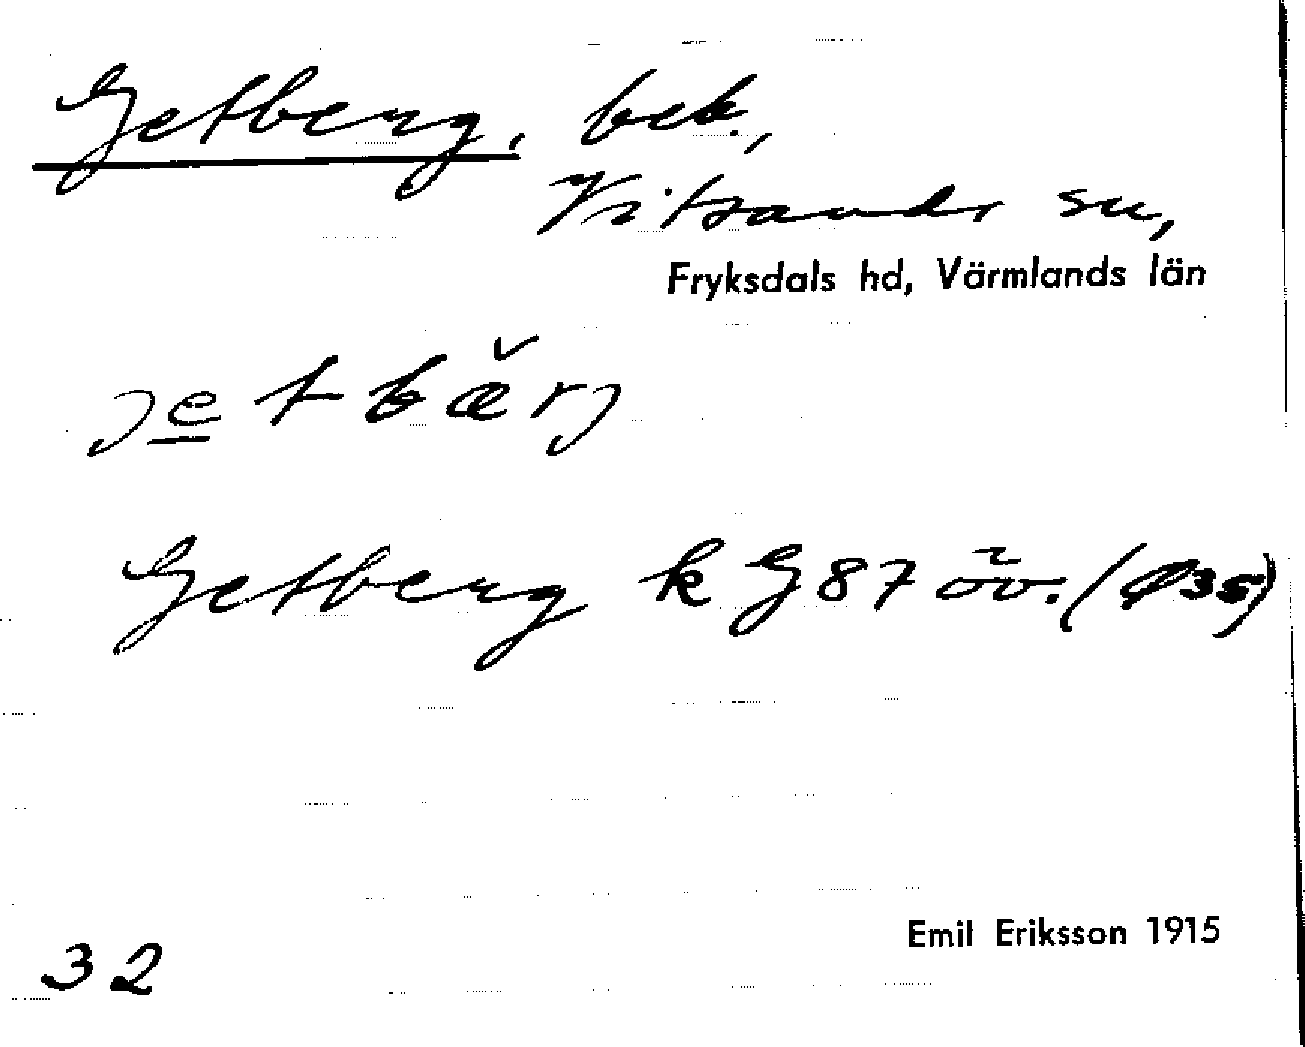 Getberg, beb.,
Vitsands sn,
Fryksdals hd, Värmlands län
jetbæ̌rj
Getberg k G87 öv. (Ø35)
32
Emil Eriksson 1915